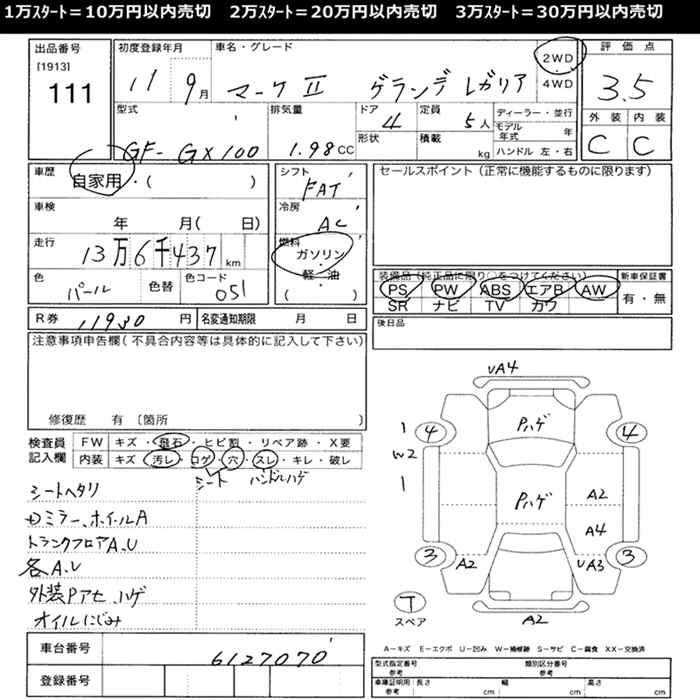 1万ｽﾀｰﾄ＝10万円以内売切　2万ｽﾀｰﾄ＝20万円以内売切　3万ｽﾀｰﾄ＝30万円以内売切
出品番号
[1913]
111
初度登録年月
11 9月
車名・グレード
マークⅡ グランデ レガリア
2WD
・
4WD
評価点
3.5
外装 内装
C C
型式
GF-GX100
排気量
1.98cc
ドア
4
定員
5人
形状
積載
kg
ディーラー・並行
モデル年式 年
ハンドル 左・右
車歴
自家用・( )
車検
年 月( 日)
走行
13万6千437km
色
パール
色替
色コード
051
シフト
FAT
冷房
AC
燃料
ガソリン
・
軽・油
( )
セールスポイント(正常に機能するものに限ります)
装備品(純正品に限り○をつけてください)
PS PW ABS エアB AW
SR ナビ TV カワ
新車保証書
有・無
後日品
R券 11930円
名変通知期限 月 日
注意事項申告欄(不具合内容等は具体的に記入して下さい)
修復歴 有 〔箇所 〕
検査員
記入欄
FW キズ・飛石・ヒビ割・リペア跡・X要
内装 キズ・汚レ・コゲ・穴・スレ・キレ・破レ
シート ハンドルハゲ
シートヘタリ
ミラー、ホイールA
トランクフロアA、U
各A、U
外装Pアセ、ハゲ
オイルにじみ
UA4
Pハゲ
1
4
4
W2
1
Pハゲ
A2
A4
3
A2
UA3
3
T
スペア
A2
A－キズ E－エクボ U－凹み W－補修跡 S－サビ C－腐食 XX－交換済
車台番号
6127070
登録番号
型式指定番号
参考
類別区分番号
参考
車庫証明用
参考
長さ cm
幅 cm
高さ cm